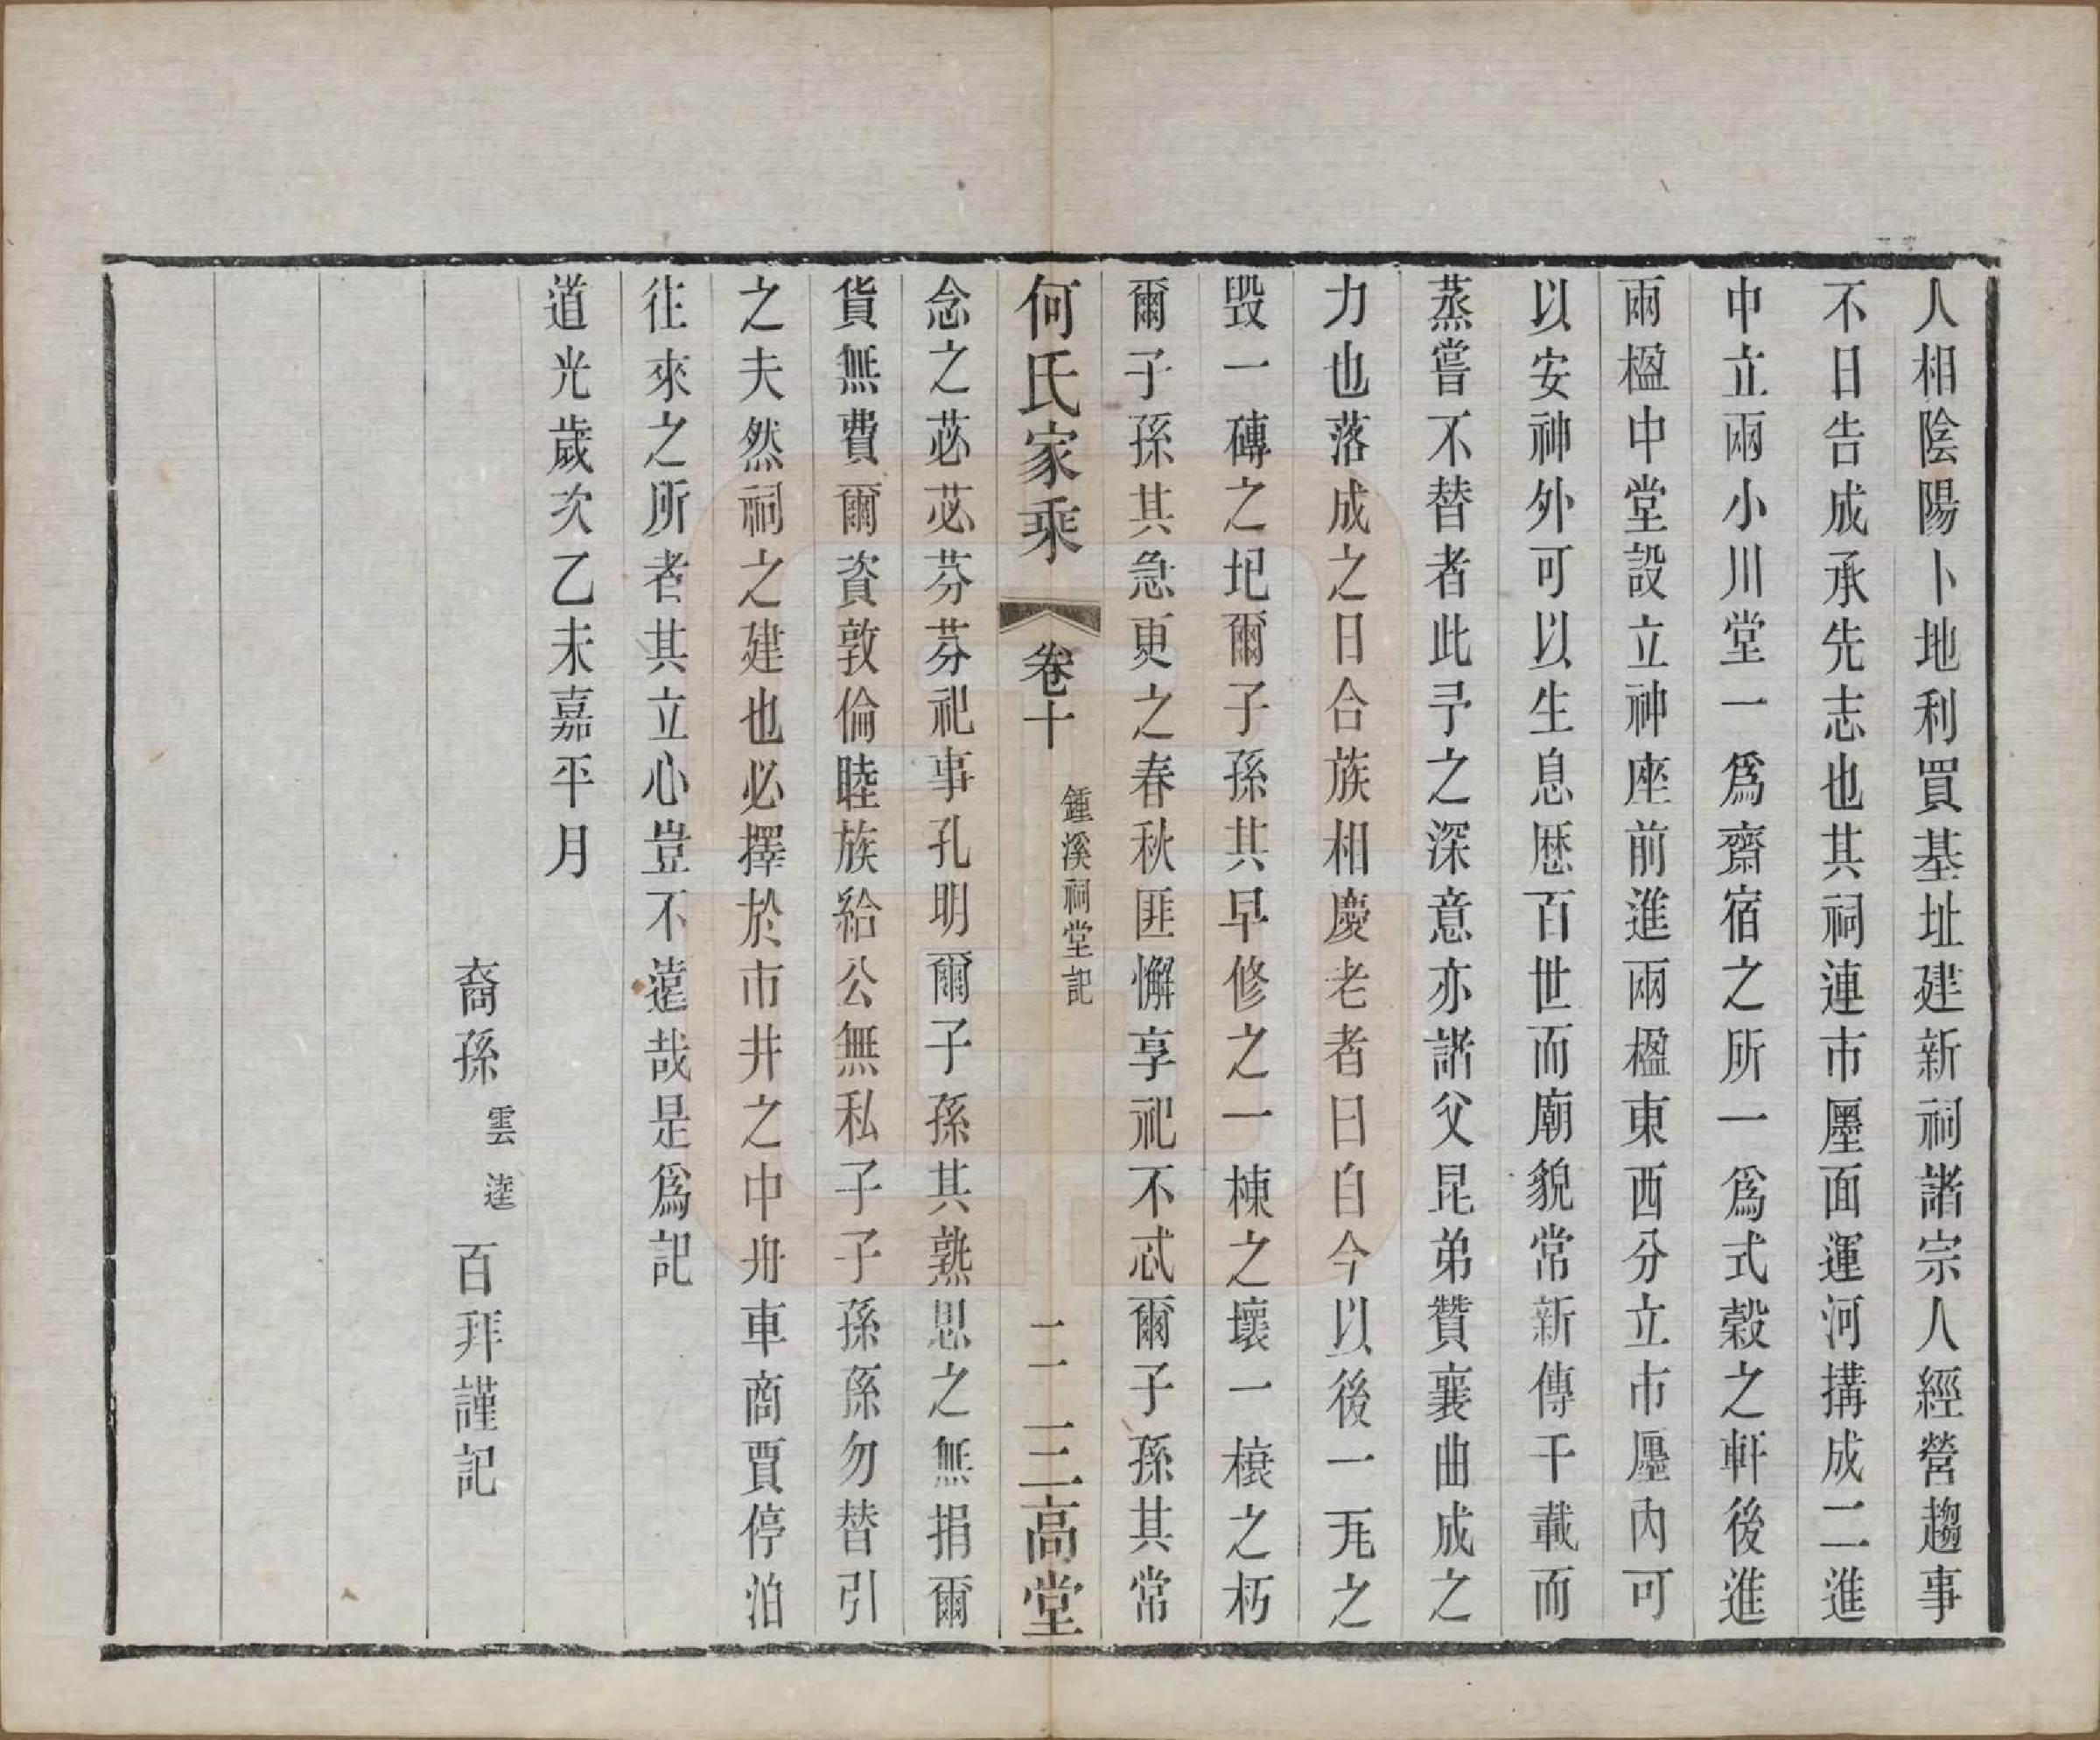 人相陰陽卜地利買基址建新祠諸宗人經營趨事
不日告成承先志也其祠連市廛面運河搆成二進
中立兩小川堂一爲齋宿之所一爲式穀之軒後進
兩楹中堂設立神座前進兩楹東西分立市廛內可
以安神外可以生息歷百世而廟貌常新傳千載而
蒸嘗不替者此予之深意亦諸父昆弟贊襄曲成之
力也落成之日合族相慶老者曰自今以後一瓦之
毀一磚之圯爾子孫其早修之一棟之壞一榱之朽
爾子孫其急更之春秋匪懈享祀不忒爾子孫其常
何氏家乘 卷十 鍾溪祠堂記 二 三高堂
念之苾苾芬芬祀事孔明爾子孫其熟思之無捐爾
貨無費爾資敦倫睦族給公無私子子孫孫勿替引
之夫然祠之建也必擇於市井之中舟車商賈停泊
往來之所者其立心豈不遠哉是爲記
道光歲次乙未嘉平月
裔孫雲逵百拜謹記